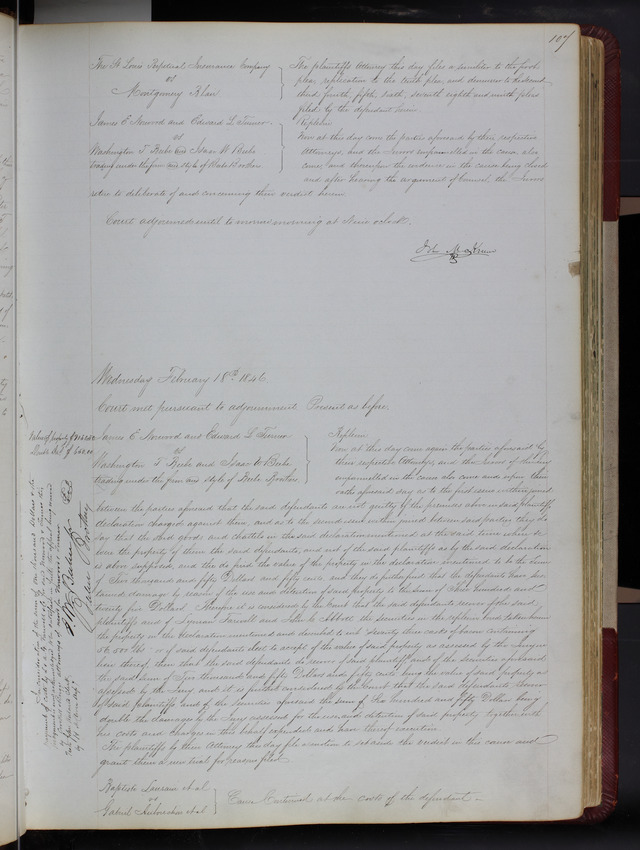 107
The St Louis Perpetual Insurance Company
vs
Montgomery Blair
The plaintiffs Attorney this day files a similiter to the first
plea, replication to the tenth plea, and demurrer to the second
third fourth, fifth, sixth, seventh eighth and ninth pleas
filed by the defendant herein.
James E Norwood and Edward L Turner
vs
Washington T Beebe and Isaac W Beebe
trading under the firm and style of Beebe Brother
Replevin
Now at this day come the parties aforesaid by their respective
Attorneys, and the Jurors empannelled in the cause also
come, and thereupon the evidence in the cause being closed
and after hearing the argument of Counsel, the Jurors
retire to deliberate of and concerning their verdict herein
Court adjourned until to morrow morning at Nine oclock.
John M
Wednesday February 18th 1846
Court met pursuant to adjournment. Present as before.
James E Norwood and Edward L Turner
vs
Washington T Beebe and Isaac W Beebe
trading under the firm and style of Beebe Brother
Replevin
Now at this day come again the parties aforesaid by
their respective Attorneys, and the Jurors of the Jury
empannelled in the cause also come and upon their
oaths aforesaid say as to the first issue within joined
between the parties aforesaid that the said defendants are not guilty of the premises above in said plaintiffs
declaration charged against them, and as to the second issue within joined between said parties they do
say that the said goods and chattels in the said declaration mentioned at the said time when &c
were the property of them the said defendants, and not of the said plaintiffs as by the said declaration
is above supposed, and the do find the value of the property in the declaration mentioned to be the sum
of Six thousand and fifty Dollars and fifty cents, and they do further find that the defendants have sus
tained damage by reason of the use and detention of said property to the sum of Three hundred and
twenty five Dollars. Therefore it is considered by the Court that the said defendants recover of the said
plaintiffs and of Lyman Farwell and John C Abbott the securities in the replevin bond taken herein
the property in the declaration mentioned and described to wit Seventy three casks of bacon containing
56,500 lbs. or if said defendants elect to accept of the value of said property as assessed by the Jury
here thereof then that the said defendants do recover of said plaintiffs and of the securities aforesaid
the said sum of Six thousand and fifty Dollars and fifty cents being the value of said property as
assessed by the Jury, and it is further considered by the Court that the said defendants recover
of said plaintiffs and of the securities aforesaid the sum of Six hundred and fifty Dollars being
double the damages by the Jury assessed for the use and detention of said property together with
his costs and charges in this behalf expended and have thereof execution.
The plaintiffs by their Attorney this day file a motion to set aside the verdict in this cause and
grant them a new trial for reasons filed
Baptiste
vs
Gabriel
Cause Continued at the costs of the defendant.